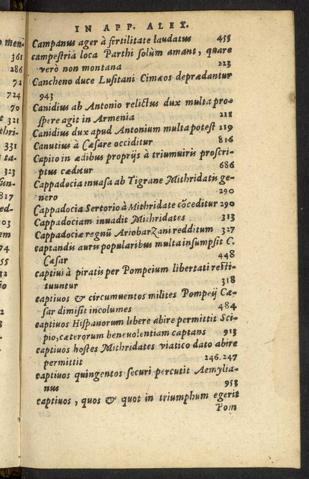 IN APP. ALEX.
Campanus ager à fertilitate laudatus 455
campestria loca Parthi solùm amant, quare
verò non montana 223
Cancheno duce Lusitani Cimæos deprædantur
943
Canidius ab Antonio relictus dux multa pro-
spere agit in Armenia 218
Canidius dux apud Antonium multa potest 119
Canutius à Cæsare occiditur 816
Capito in ædibus proprijs à triumuiris proscri-
ptus cæditur 686
Cappadocia inuasa ab Tigrane Mithridatis ge-
nero 290
Cappadocia Sertorio à Mithridate cõceditur 290
Cappadociam inuadit Mithridates 313
Cappadociæ regnũ Ariobarzani redditum 327
captandis auris popularibus multa insumpsit C.
Cæsar 448
captiui à piratis per Pompeium libertati resti-
tuuntur 318
captiuos & circumuentos milites Pompeij Cæ-
sar dimisit incolumes 484
captiuos Hispanorum libere abire permittit Sci-
pio, cæterorum beneuolentiam captans 913
captiuos hostes Mithridates viatico dato abire
permittit 246.247
captiuos quingentos securi percutit Aemylia-
nus 953
captiuos, quos & quot in triumphum egerit
Pom
o men-
361
286
72
724
70
321
thri-
321
sun-
817
ed
823
ue
774
54